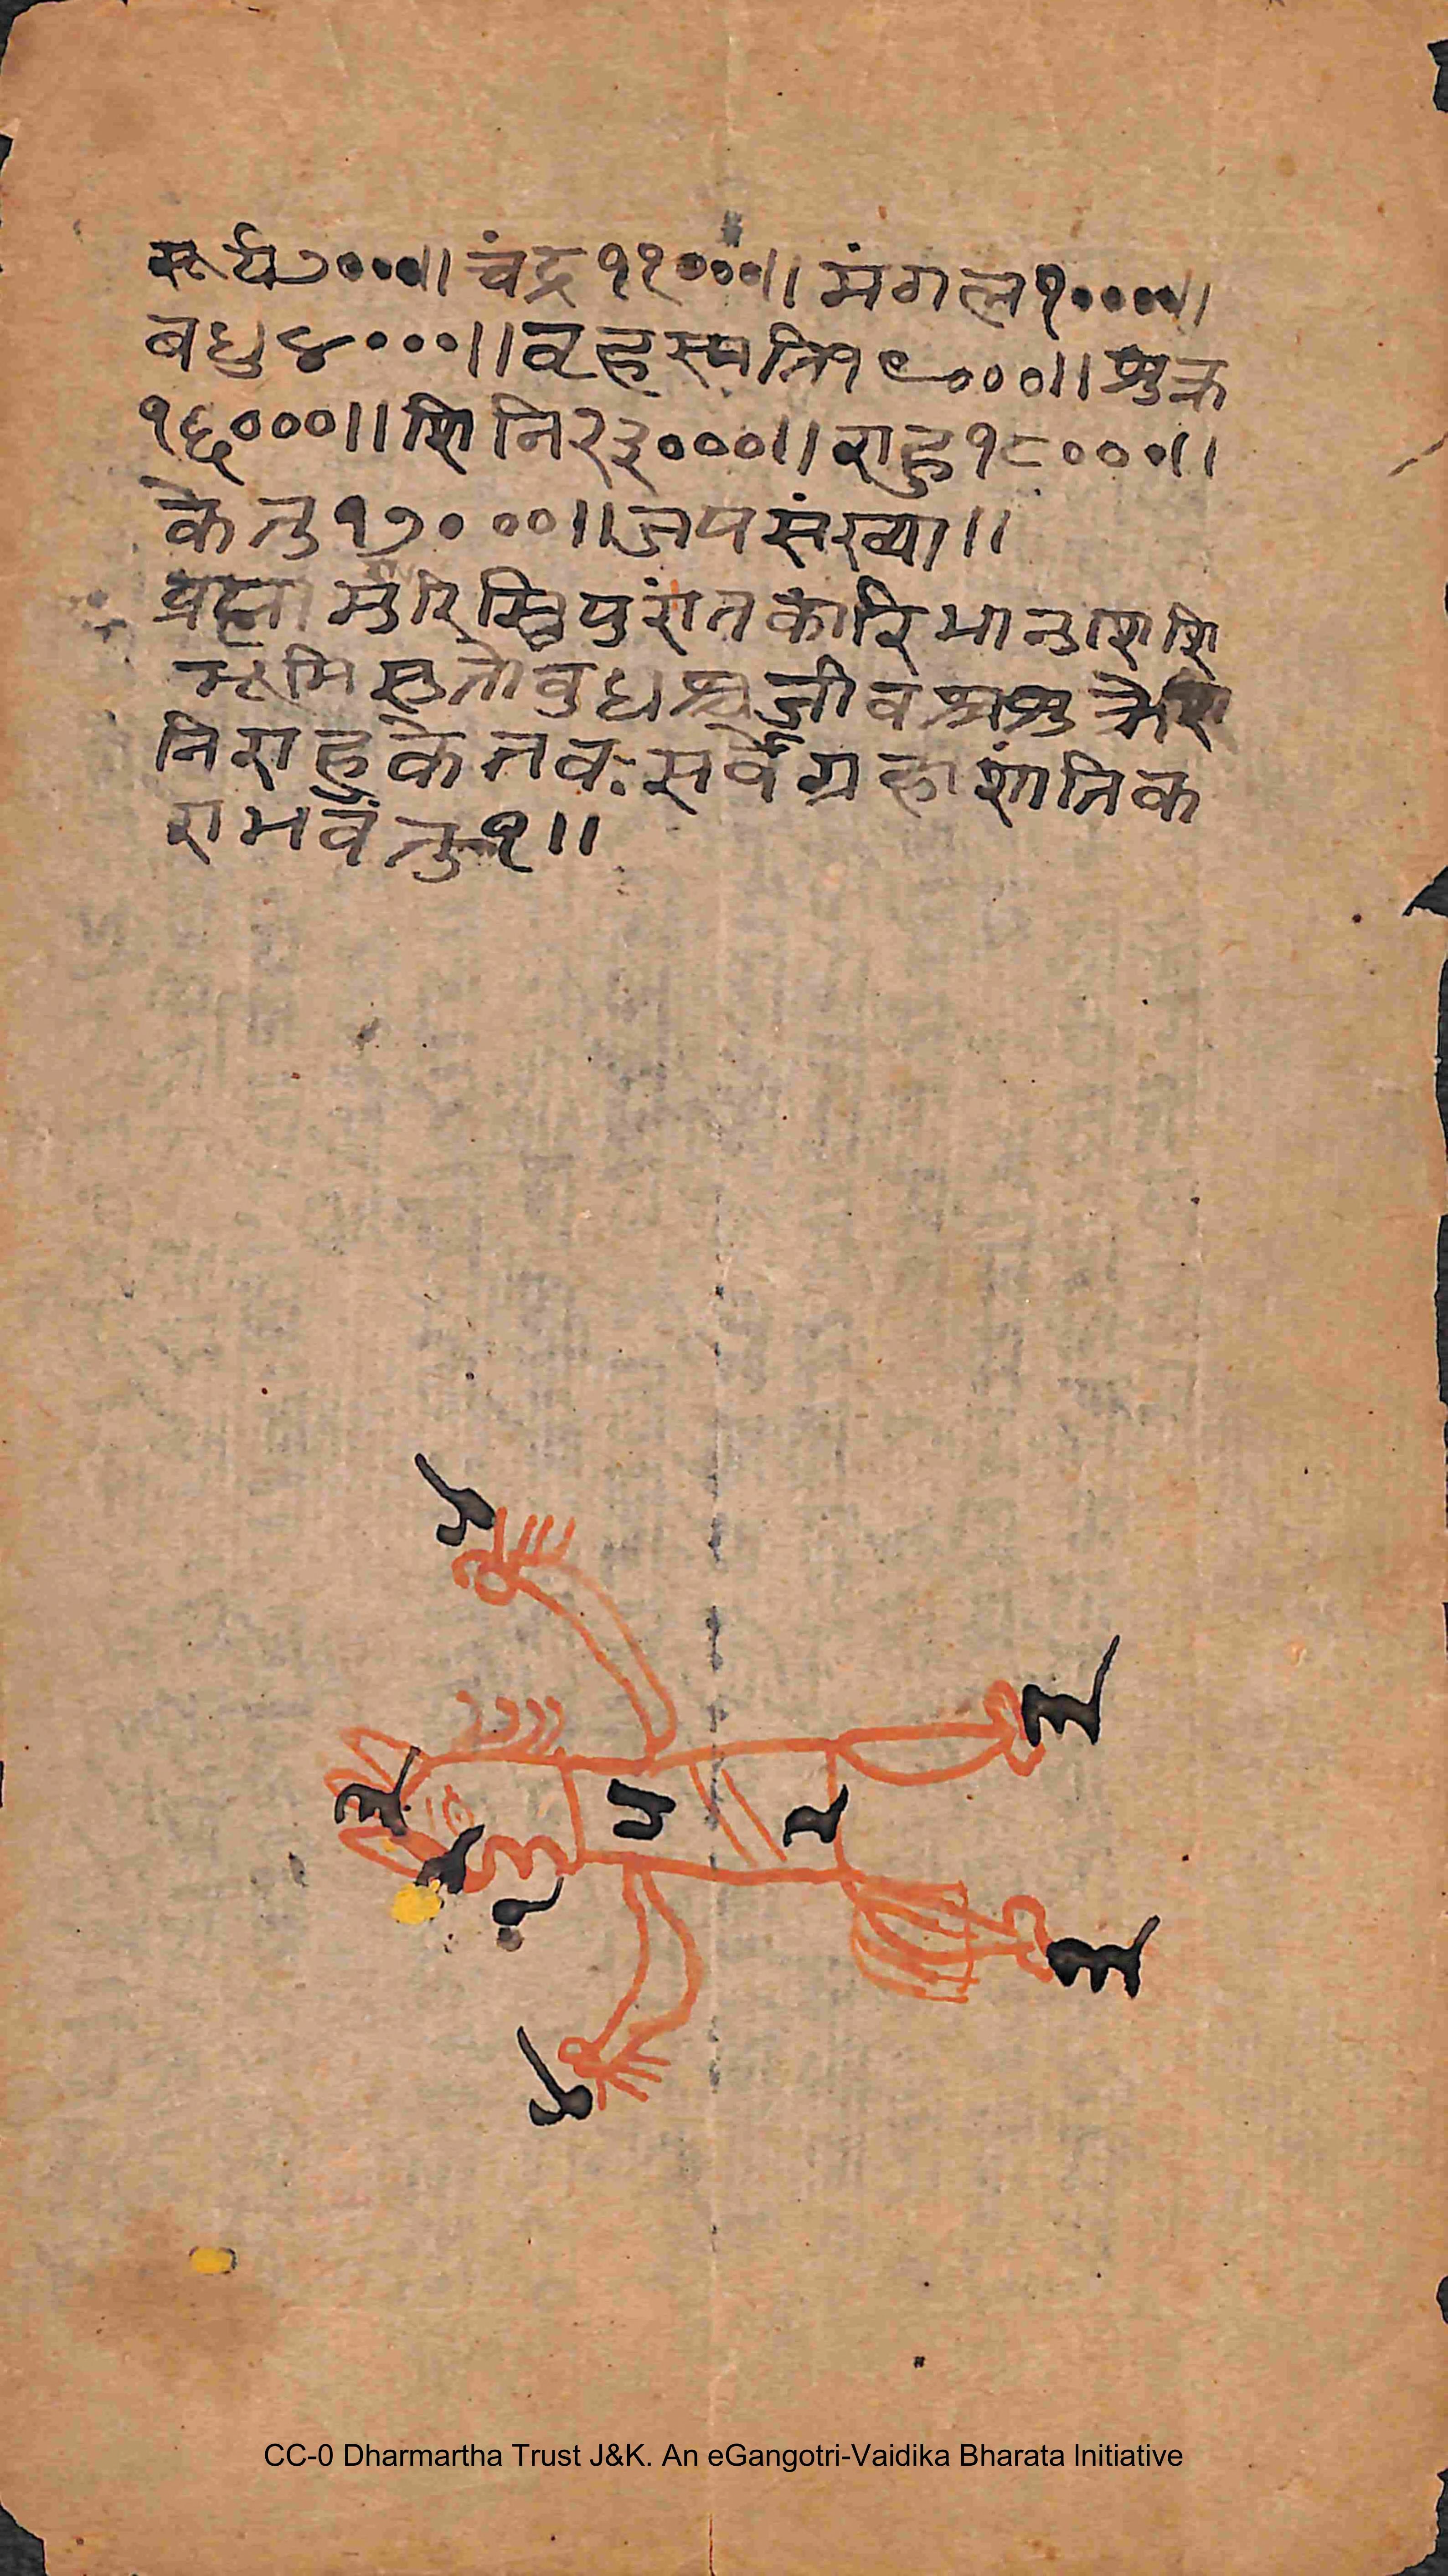 सूर्य७०००॥ चंद्र११०००॥ मंगल१००००॥
बधु४०००॥ वृहस्पति१९०००॥ शुक्र
१६०००॥ शिनि२३०००॥ राहु१८०००॥
केतु१७०००॥ जपसंख्या॥
ब्रह्मा मुरारि स्त्रिपुरांतकारि भानुशशि
भूमिसुतो वुधश्च जीवश्च शु
निराहुकेतवः सर्वे ग्रहा शांतिक
रा भवंतु १॥
CC-0 Dharmartha Trust J&K. An eGangotri-Vaidika Bharata Initiative